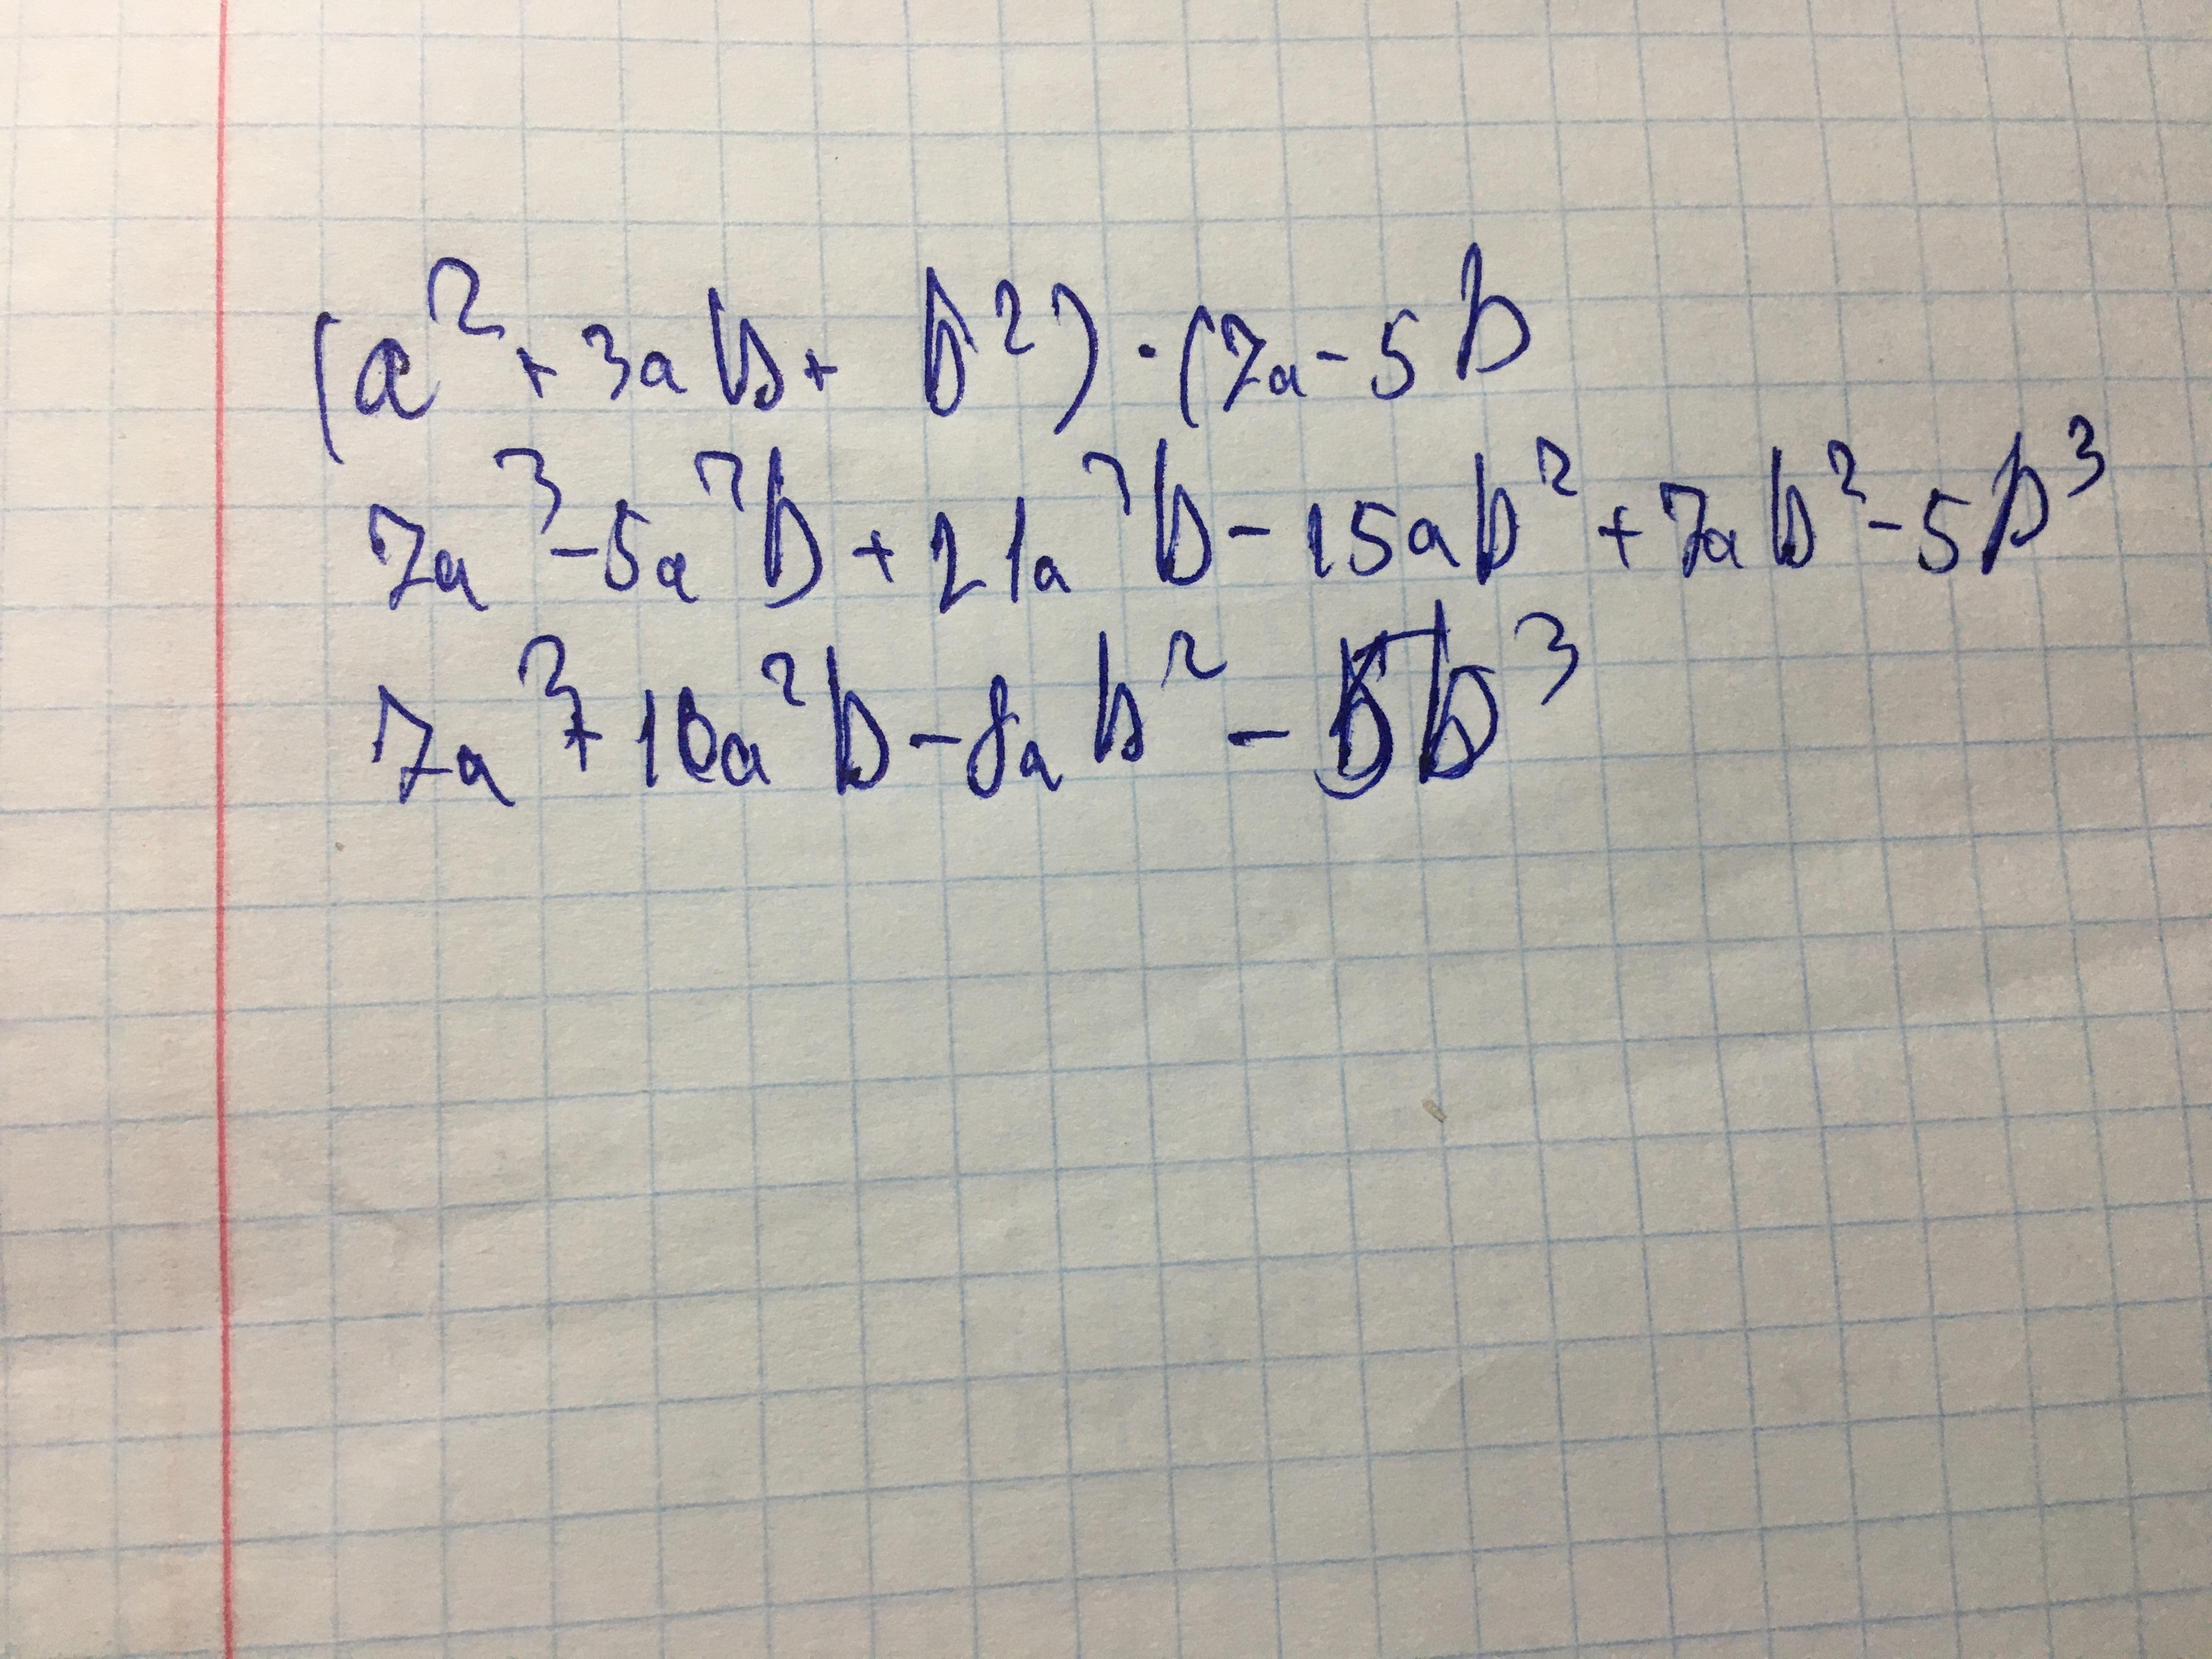 (a² + 3ab + b²) · (7a - 5b
7a³ - 5a²b + 21a²b - 15ab² + 7ab² - 5b³
7a³ + 16a²b - 8ab² - 5b³